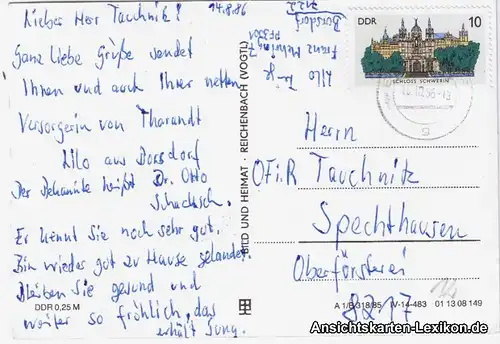 Lieber Herr Tauchnitz!
14.8.86
Ganz liebe Grüße sendet
Ihnen und auch Ihrer netten
Versorgerin von Tharandt
Lilo aus Borsdorf
Der Bekannte heißt Dr. Otto
Schachsch.
Er kennt Sie noch sehr gut.
Bin wieder gut zu Hause gelandet.
Bleiben Sie gesund und
weiter so fröhlich, das
erhält jung.
DDR 0,25 M
BILD UND HEIMAT · REICHENBACH (VOGTL)
Lilo
Franz Mehring
Borsdorf
7122
DDR 10
SCHLOSS SCHWERIN
Herrn
OFi.R Tauchnitz
Spechthausen
Oberförsterei
8217
A 1/B 318/85 IV-14-483 01 13 08 149
Ansichtskarten-Lexikon.de